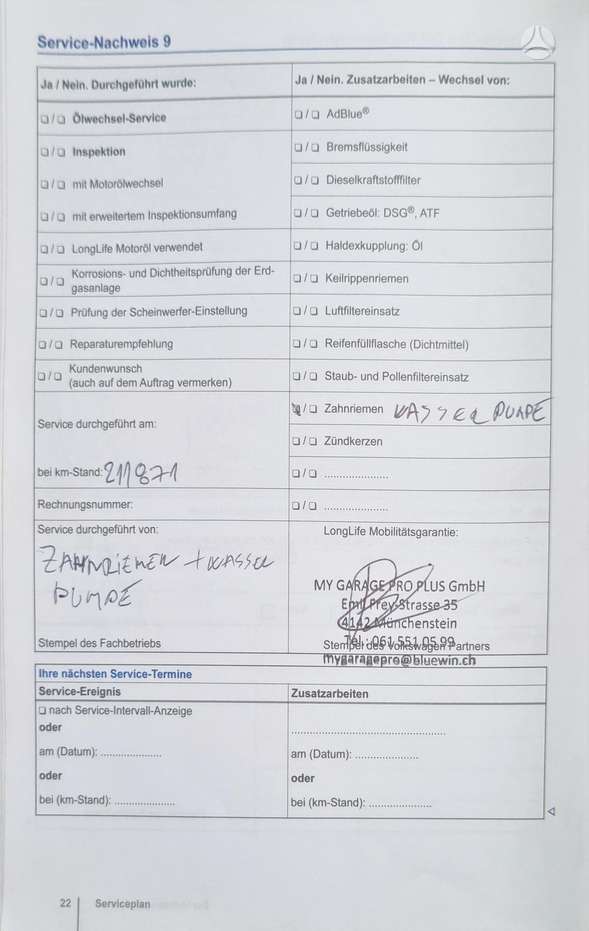 Service-Nachweis 9
Ja / Nein. Durchgeführt wurde:
❑ / ❑ Ölwechsel-Service
❑ / ❑ Inspektion
❑ / ❑ mit Motorölwechsel
❑ / ❑ mit erweitertem Inspektionsumfang
❑ / ❑ LongLife Motoröl verwendet
❑ / ❑ Korrosions- und Dichtheitsprüfung der Erd-
gasanlage
❑ / ❑ Prüfung der Scheinwerfer-Einstellung
❑ / ❑ Reparaturempfehlung
❑ / ❑ Kundenwunsch
(auch auf dem Auftrag vermerken)
Service durchgeführt am:
bei km-Stand: 211871
Rechnungsnummer:
Service durchgeführt von:
ZAHNRIEMEN + WASSER
PUMPE
Stempel des Fachbetriebs
Ja / Nein. Zusatzarbeiten – Wechsel von:
❑ / ❑ AdBlue®
❑ / ❑ Bremsflüssigkeit
❑ / ❑ Dieselkraftstofffilter
❑ / ❑ Getriebeöl: DSG®, ATF
❑ / ❑ Haldexkupplung: Öl
❑ / ❑ Keilrippenriemen
❑ / ❑ Luftfiltereinsatz
❑ / ❑ Reifenfüllflasche (Dichtmittel)
❑ / ❑ Staub- und Pollenfiltereinsatz
❑ / ❑ Zahnriemen WASSER PUMPE
❑ / ❑ Zündkerzen
❑ / ❑ ......................
❑ / ❑ ......................
LongLife Mobilitätsgarantie:
MY GARAGE PRO PLUS GmbH
Emil Frey-Strasse 35
4142 Münchenstein
Tel.: 061 551 05 99
Stempel des Volkswagen Partners
mygaragepro@bluewin.ch
Ihre nächsten Service-Termine
Service-Ereignis
❑ nach Service-Intervall-Anzeige
oder
am (Datum): .....................
oder
bei (km-Stand): .....................
Zusatzarbeiten
.....................................................
am (Datum): ......................
oder
bei (km-Stand): ......................
22 Serviceplan